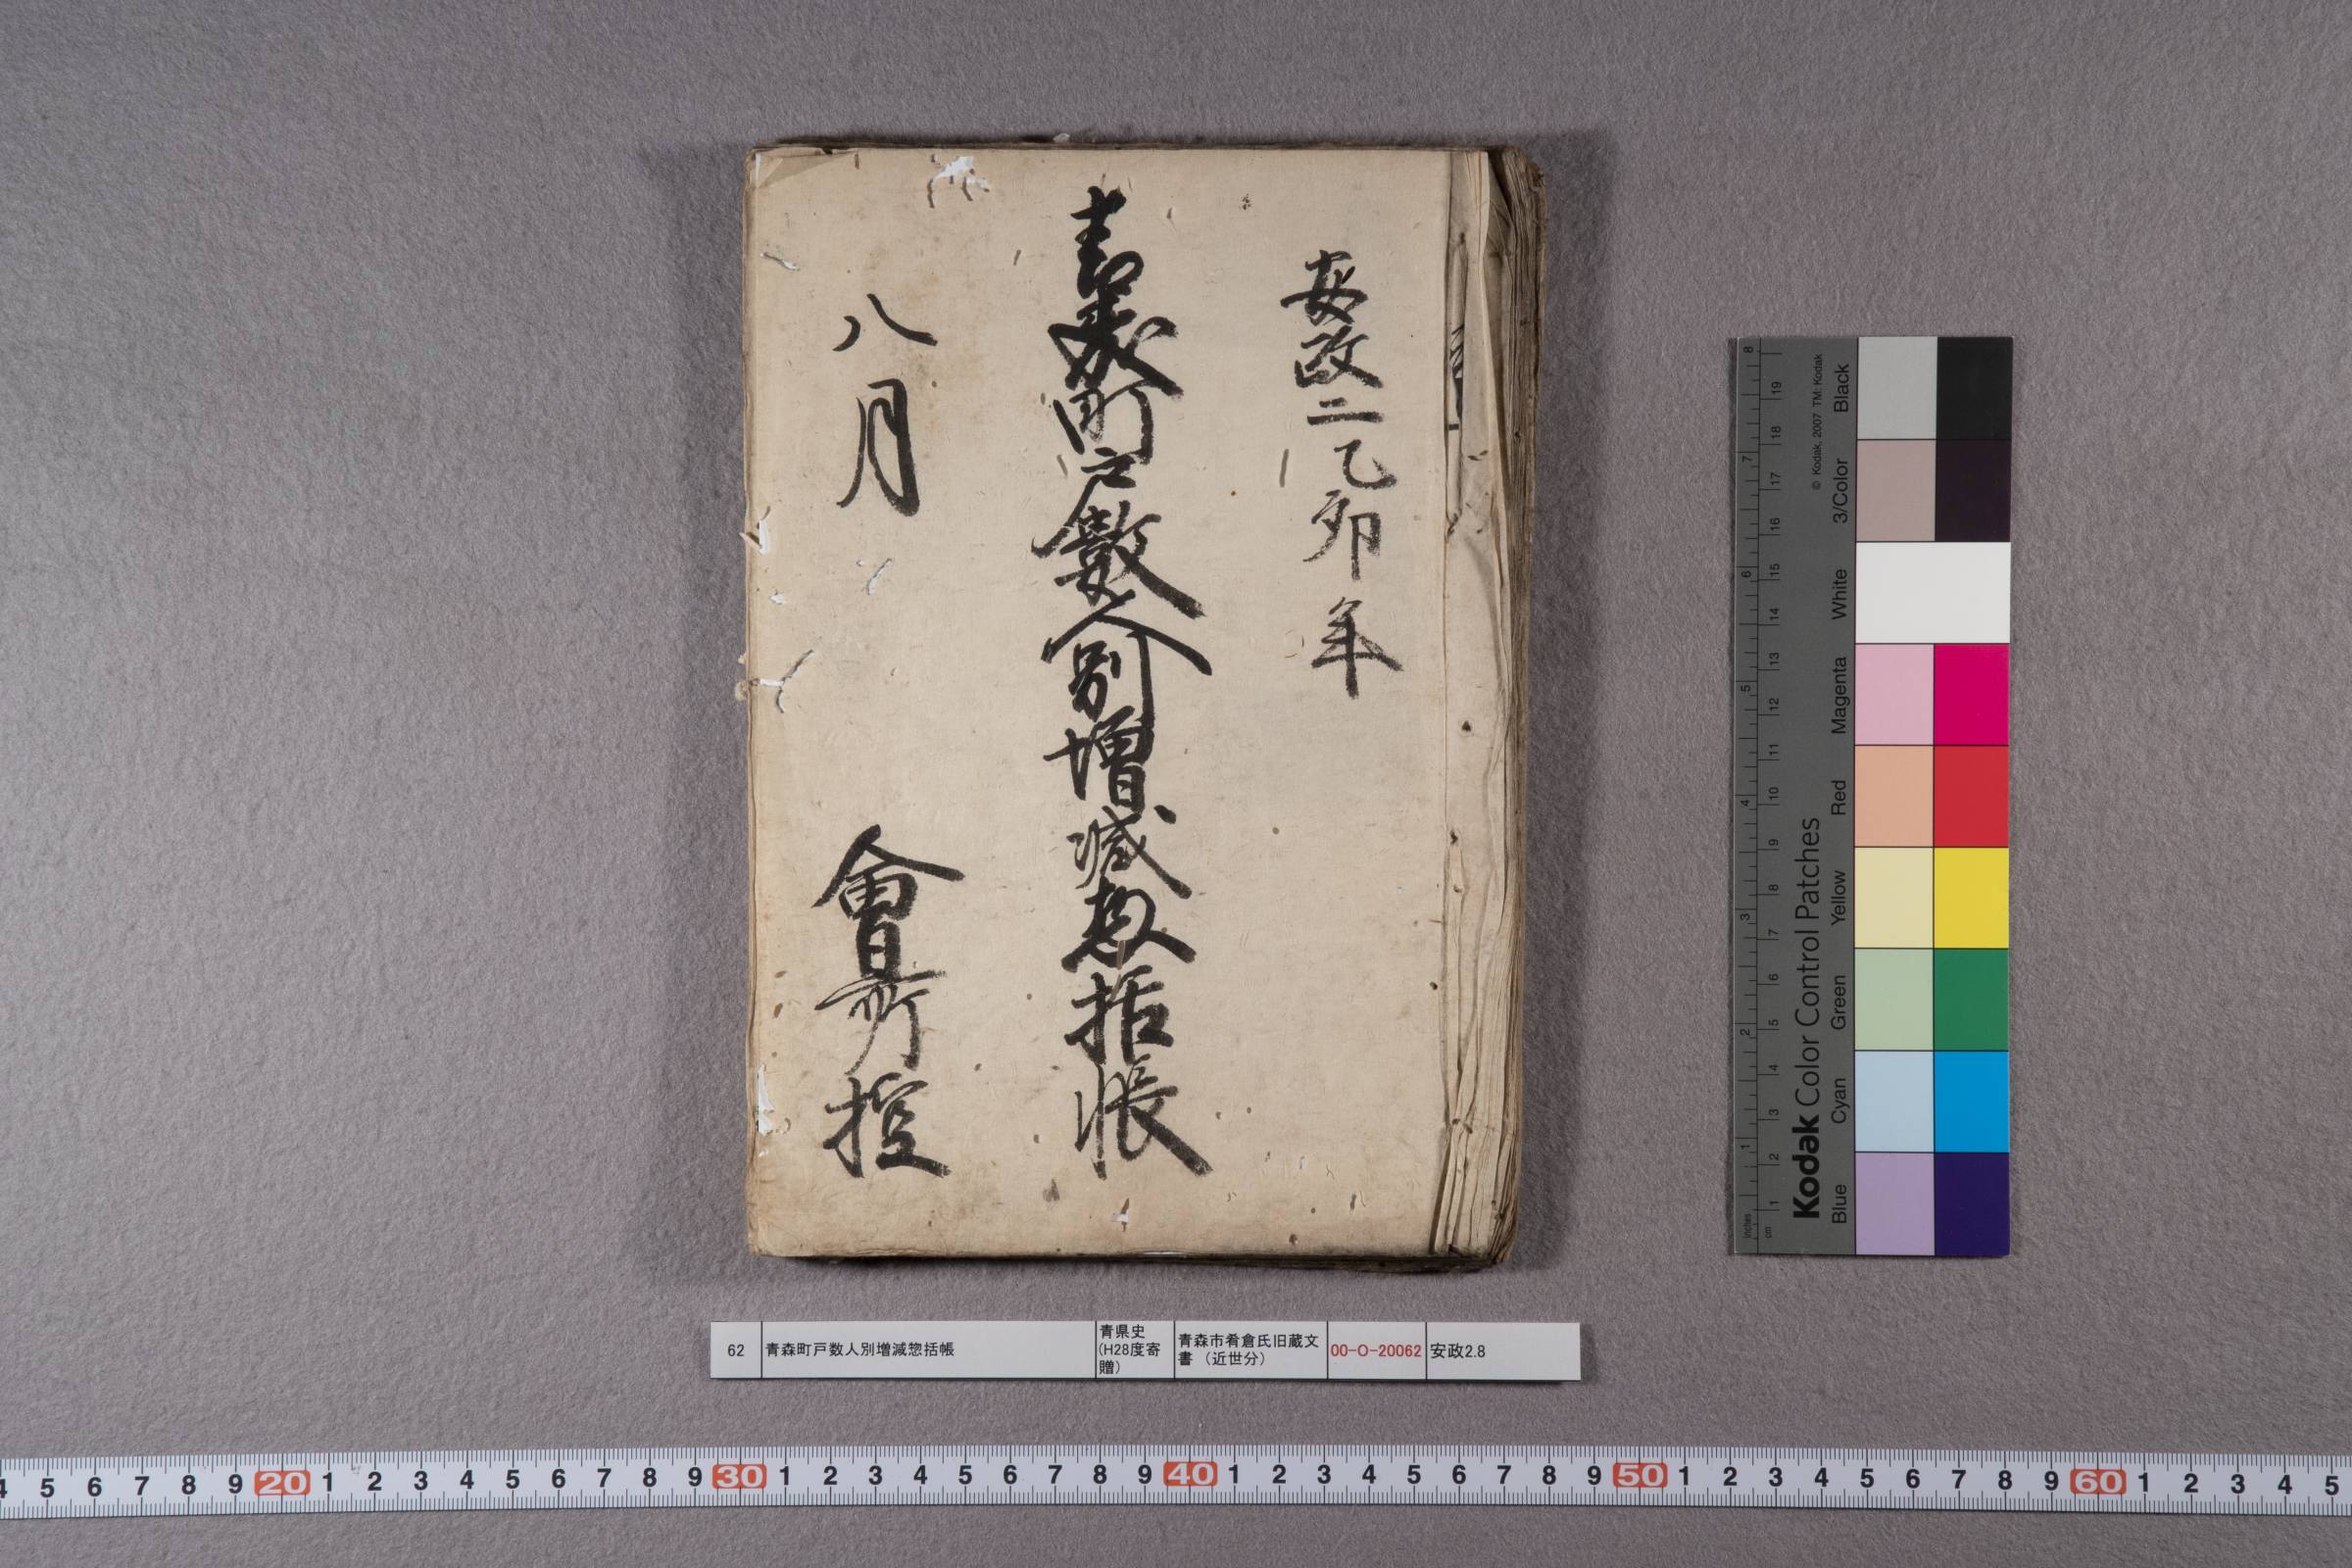 安政二乙卯年
青森町戸數人別增減惣括帳
八月
會所町控
62
青森町戸数人別増減惣括帳
青県史
(H28度寄
贈)
青森市肴倉氏旧蔵文
書（近世分）
00-O-20062
安政2.8
© Kodak, 2007 TM: Kodak
Kodak Color Control Patches
Blue Cyan Green Yellow Red Magenta White 3/Color Black
inches 1 2 3 4 5 6 7 8
cm 1 2 3 4 5 6 7 8 9 10 11 12 13 14 15 16 17 18 19
4 5 6 7 8 9 20 1 2 3 4 5 6 7 8 9 30 1 2 3 4 5 6 7 8 9 40 1 2 3 4 5 6 7 8 9 50 1 2 3 4 5 6 7 8 9 60 1 2 3 4 5